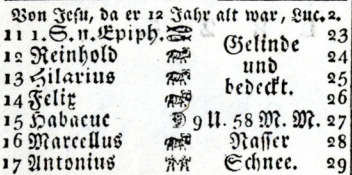 Von Jesu, da er 12 Jahr alt war, Luc. 2.
11 1. S. n. Epiph. 23
12 Reinhold Gelinde 24
13 Hilarius und 25
14 Felix bedeckt. 26
15 Habacuc 9 U. 58 M. M. 27
16 Marcellus Nasser 28
17 Antonius Schnee. 29